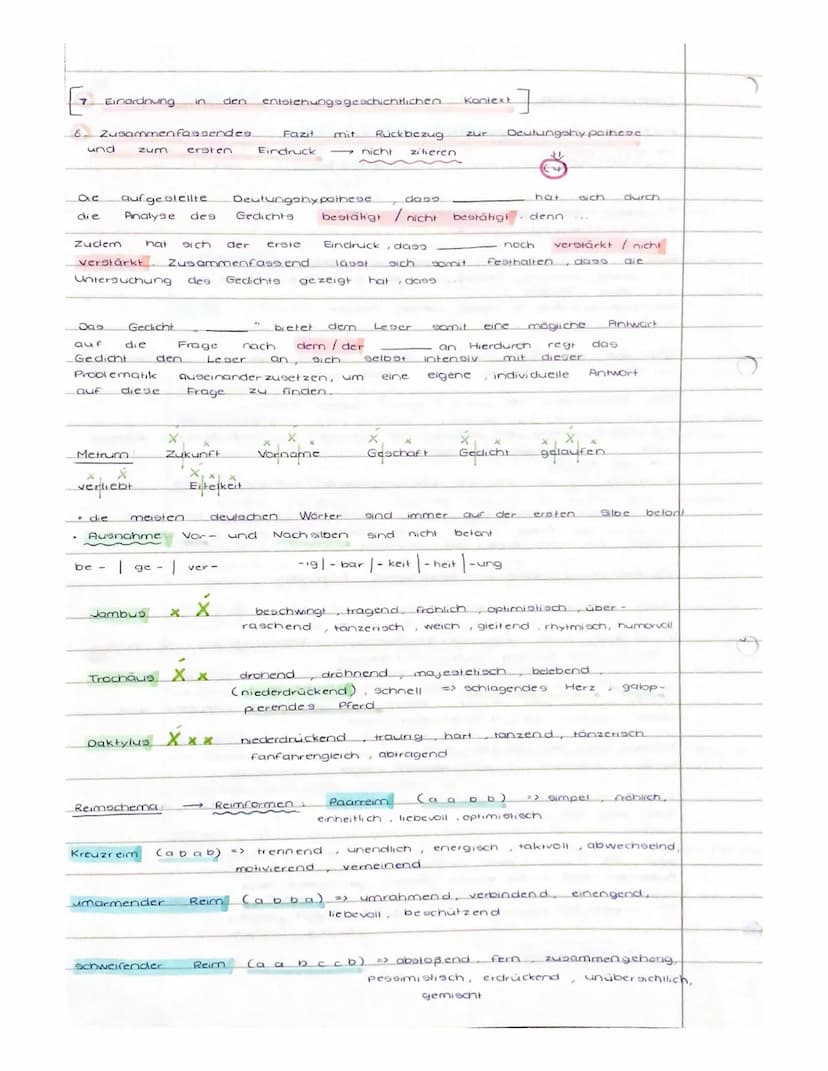 [7 Einordnung in den entstehungsgeschichtlichen Kontext]
8. Zusammenfassendes Fazit mit Rückbezug zur Deutungshypothese
und zum ersten Eindruck → nicht zitieren
Die aufgestellte Deutungshypothese, dass ______ hat sich durch
die Analyse des Gedichts bestätigt / nicht bestätigt, denn ...
Zudem hat sich der erste Eindruck, dass ______ noch verstärkt / nicht
verstärkt. Zusammenfassend lässt sich somit festhalten, dass die
Untersuchung des Gedichts gezeigt hat, dass ...
Das Gedicht „______“ bietet dem Leser somit eine mögliche Antwort
auf die Frage nach dem / der ______ an. Hierdurch regt das
Gedicht den Leser an, sich selbst intensiv mit dieser
Problematik auseinanderzusetzen, um eine eigene, individuelle Antwort
auf diese Frage zu finden.
X́ x x X́ x X́ x x X́ x X́ x
Metrum: Zukunft Vorname Geschäft Gedicht gelaufen
x X́ X́ x x
verliebt Eitelkeit
• die meisten deutschen Wörter sind immer auf der ersten Silbe betont
• Ausnahme Vor- und Nachsilben sind nicht betont
be- | ge- | ver- -ig | -bar | -keit | -heit | -ung
Jambus x X́ beschwingt, tragend, fröhlich, optimistisch, über-
raschend, tänzerisch, weich, gleitend, rhytmisch, humorvoll
Trochäus X́ x drohend, dröhnend, majestetisch, belebend,
(niederdrückend), schnell => schlagendes Herz, galop-
pierendes Pferd
Daktylus X́ x x niederdrückend, traurig, hart, tanzend, tänzerisch
fanfahrengleich, abtragend
Reimschema → Reimformen: Paarreim (a a b b) => simpel, fröhlich,
einheitlich, liebevoll, optimistisch
Kreuzreim (a b a b) => trennend, unendlich, energisch, taktvoll, abwechselnd,
motivierend, verneinend
umarmender Reim (a b b a) => umrahmend, verbindend, einengend,
liebevoll, beschützend
schweifender Reim (a a b c c b) => abstoßend, fern, zusammengehörig,
pessimistisch, erdrückend, unübersichtlich,
gemischt